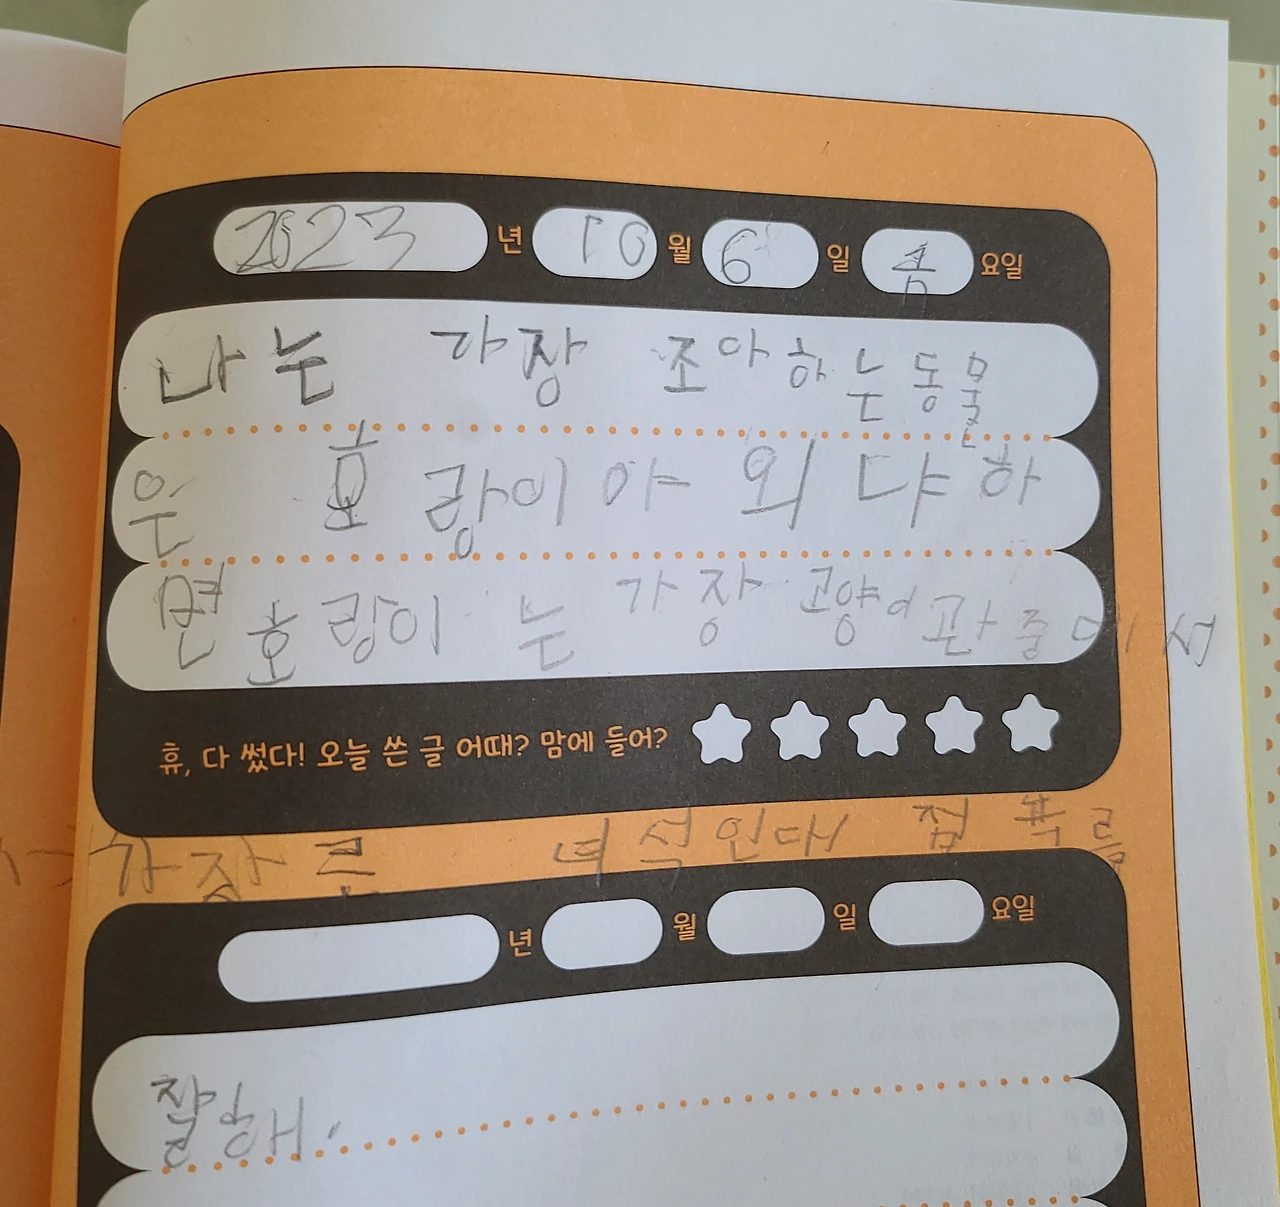 2023 년 10 월 6 일 금 요일
나는 가장 조아하는동물
은 호랑이야 외냐하
면 호랑이는 가장 고양이과중에서
휴, 다 썼다! 오늘 쓴 글 어때? 맘에 들어?
가장 큰 녀석인대 점프를
년 월 일 요일
잘해.